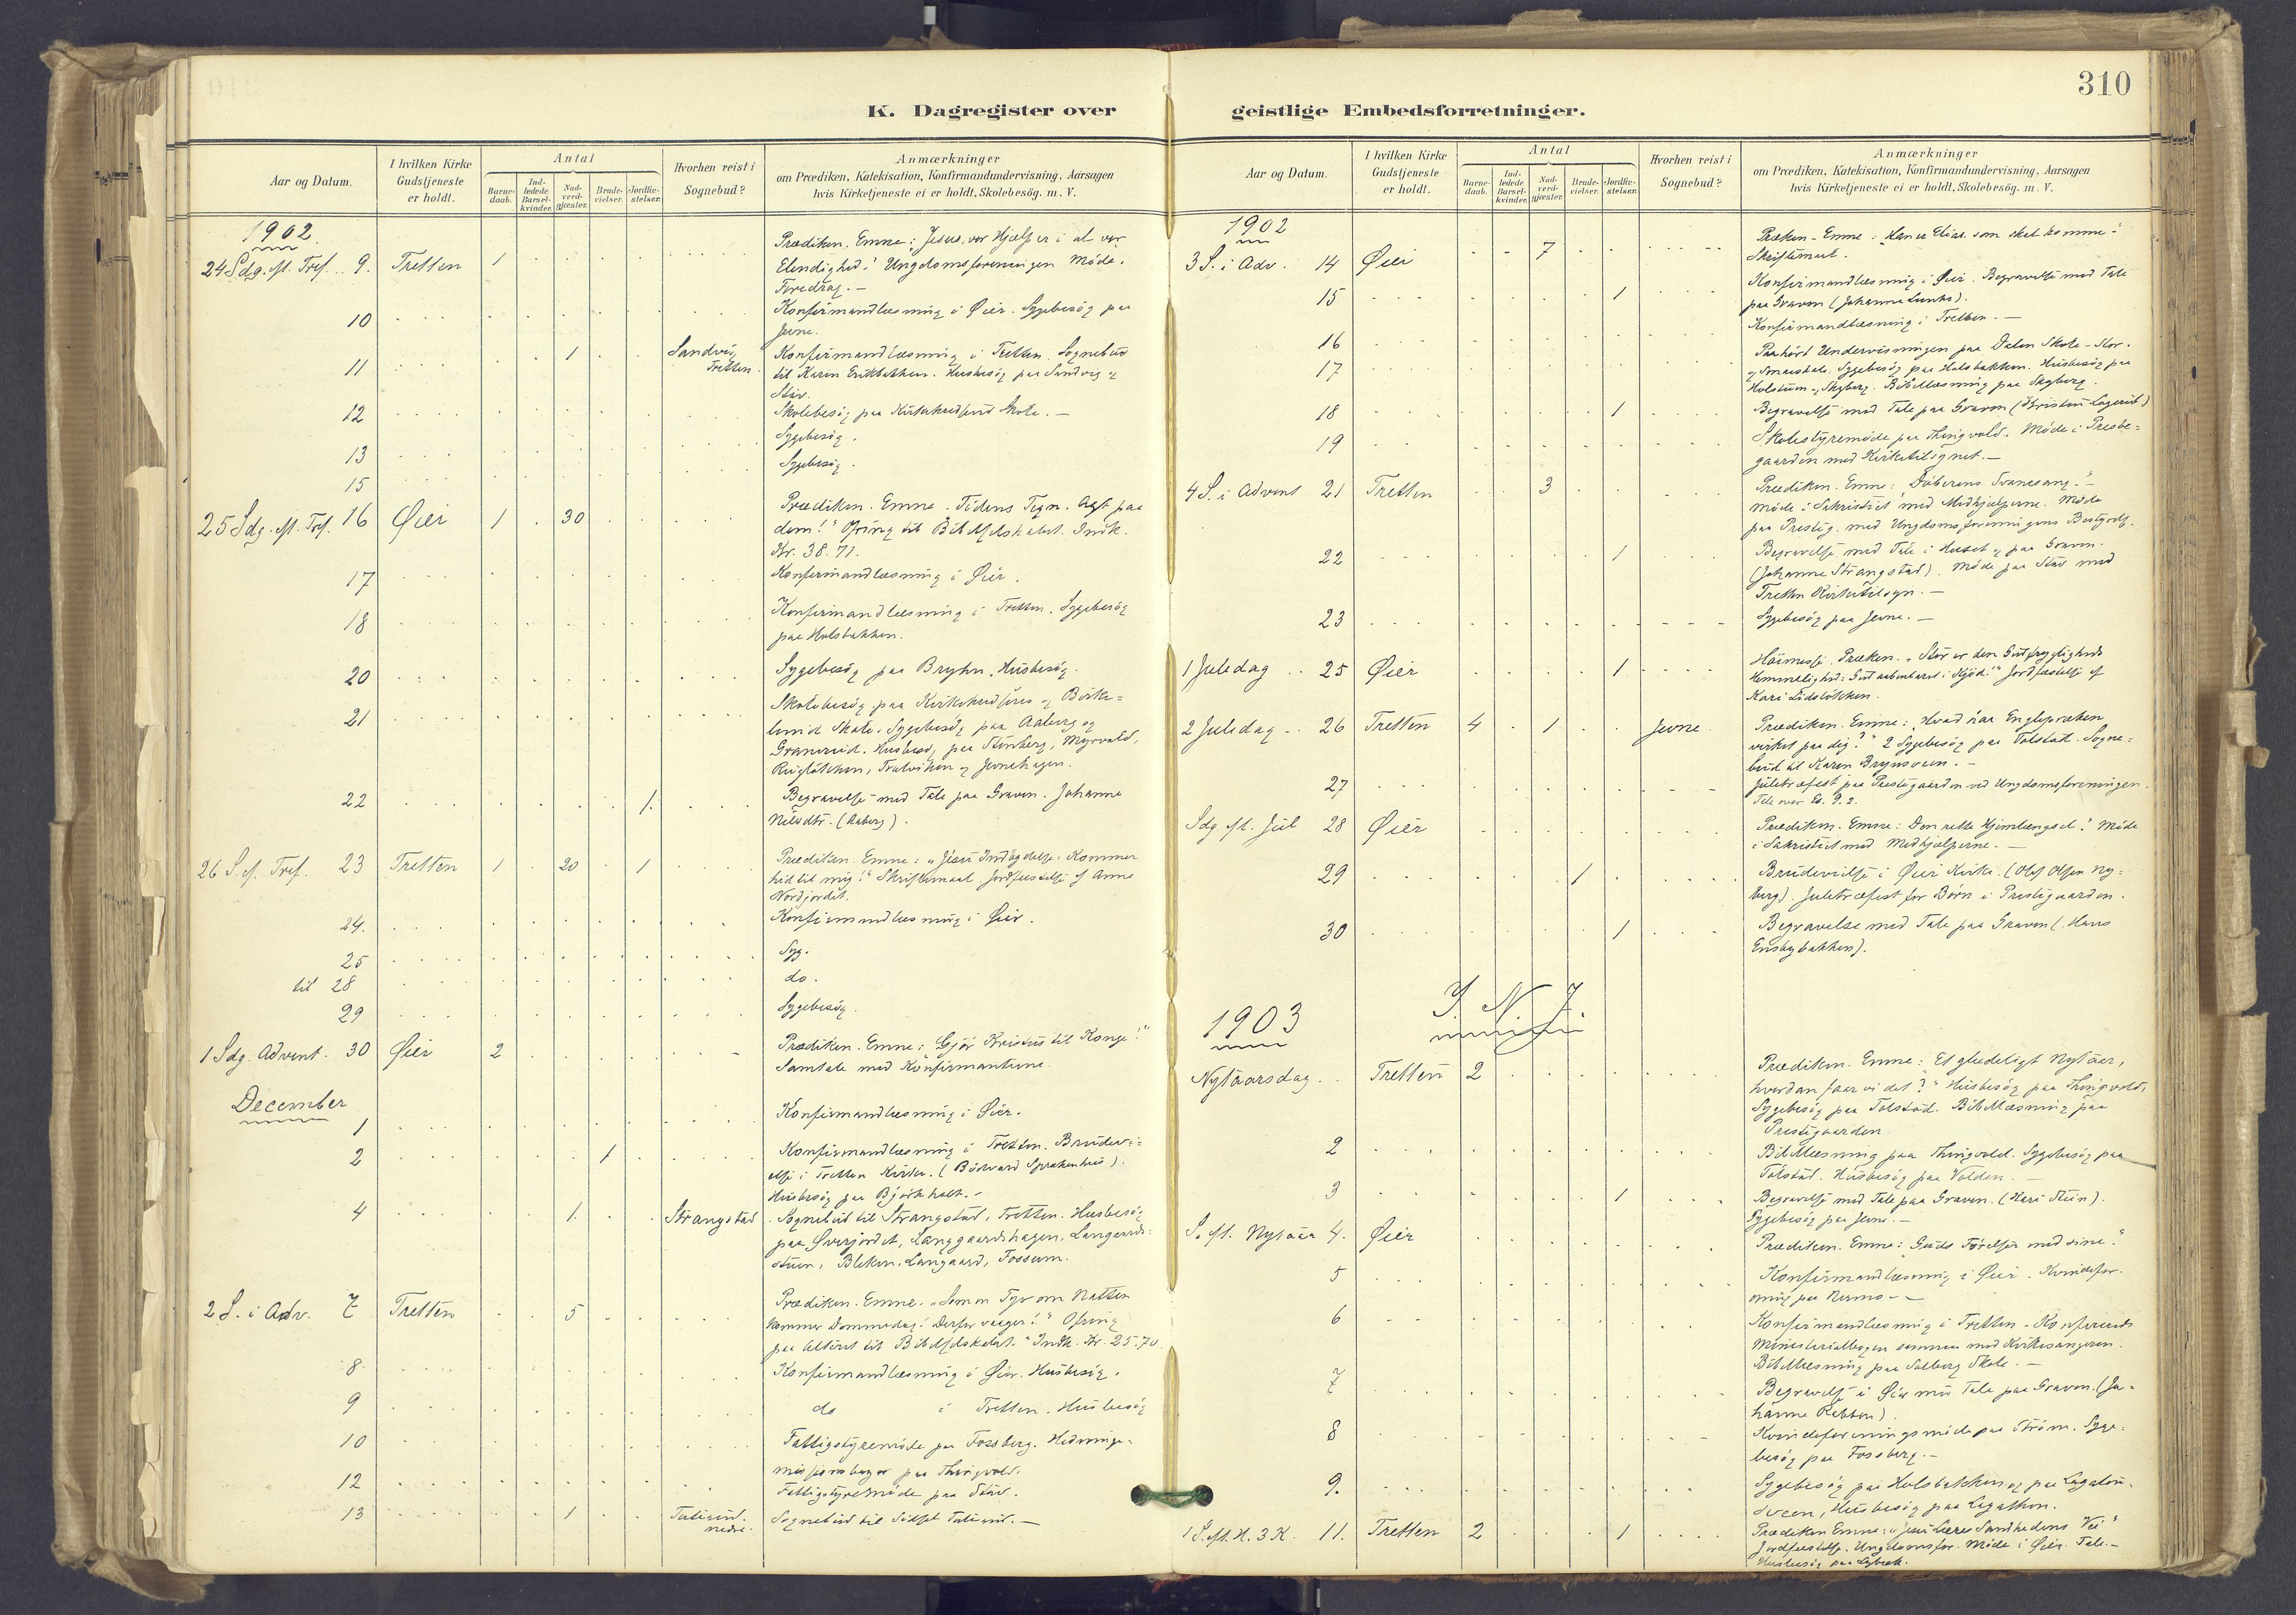 310
K. Dagregister over geistlige Embedsforretninger.
Aar og Datum.
I hvilken Kirke Gudstjeneste er holdt.
Antal
Barnedaab.
Indledede Barselkvinder.
Nadverdgjæster.
Brudevielser.
Jordfæstelser.
Hvorhen reist i Sognebud?
Anmærkninger
om Prædiken, Katekisation, Konfirmandundervisning, Aarsagen
hvis Kirketjeneste ei er holdt, Skolebesög. m. V.
1902
24 Sdg. eft. Tref. 9. Tretten 1 Prædiken. Emne: Jesus, vor Hjælper i al vor
Elendighed! Ungdomsforeningen Møde.
Foredrag. —
10 Konfirmandlæsning i Øier. Sygebesög paa
Jevne.
11 1 Sandvig Tretten. Konfirmandlæsning i Tretten. Sognebud
til Karen . Husbesög paa Sandvig og
Stav.
12 Skolebesög paa Skole. —
13 Sygebesög.
15 Sygebesög.
25 Sdg. eft. Tref. 16 Øier 1 30 Prædiken. Emne. Tidens Tegn. Agt paa
dem!" Ofring til Bibelselskabet. Indk.
Kr. 38.71.
17 Konfirmandlæsning i Øier.
18 Konfirmandlæsning i Tretten. Sygebesög
paa Holsbakken.
20 Sygebesög paa Bryhn. Husbesög.
21 Skolebesög paa og
Skole. Sygebesög paa Aaberg og
Granerud. Husbesög paa Stenberg, Myrvold,
og Jevnehagen.
22 1. Begravelse med Tale paa Graven. Johanne
Nilsdtr. (Aaberg).
26 S. e. Tref. 23 Tretten 1 20 1 Prædiken. Emne: "Jesu Indbydelse: Kommer
hid til mig!" Skriftemaal. Jordfæstelse af Anne
Nordjordet.
24. Konfirmandlæsning i Øier.
25 Syg.
til 28 do.
29 Sygebesög.
1 Sdg. Advent. 30 Øier 2 Prædiken. Emne: Gjör Kristus til Konge!"
Samtale med Konfirmanterne.
December
1 Konfirmandlæsning i Øier.
2 1 Konfirmandlæsning i Tretten. Brudevi=
else i Tretten Kirke. ( ).
Husbesög paa Bjørkholt. -
4 1. Strangstad Sognebud til Strangstad, Tretten. Husbesög
paa Øverjordet, Langgaardshagen, Langaards=
stuen, Bleken, Langaard, Fossum.
2 S. i Adv. 7 Tretten 5 Prædiken. Emne. "Som en Tyv om Natten
kommer Dommedag! Derfor vaager!" Ofring
paa Alteret til Bibelselskabet. Indk. Kr. 25.70.
8 Konfirmandlæsning i Øier. Husbesög.
9 do i Tretten. Husbesög
10 Fattigstyremøde paa Fossberg. Hedninge-
paa Thingvold.
12 Fattigstyremøde paa Stav.
13 1 nedre. Sognebud til . —
1902
3 S. i Adv. 14 Øier 7 Præken - Emne: Han er Elias. som skal komme"
Skriftemaal.
15 1 Konfirmandlæsning i Øier. Begravelse med Tale
paa Graven (Johanne ).
16 Konfirmandlæsning i Tretten. —
17 Paahørt Undervisningen paa Dalen Skole - Stor-
og Smaaskole. Sygebesög paa Holsbakken. Husbesög paa
Holstuen og Skyberg. Bibellæsning paa Skyberg.
18 1 Begravelse med Tale paa Graven ( )
19 Skolestyremöde paa Thingvold. Möde i Preste=
gaarden med Kirketilsynet. —
4 S. i Advent 21 Tretten 3 Prædiken. Emne: Döberens Svanesang."
Möde i Sakristiet med Medhjælperne. Möde
paa Presteg. med Ungdomsforeningens Bestyrelse.
22 1 Begravelse med Tale i Huset og paa Graven.
(Johanne Strangstad). Möde paa Stav med
Tretten Kirketilsyn. —
23 Sygebesög paa Jevne. —
1 Juledag 25 Øier 1 Høimesse. Præken. "Stor er den Gudfrygtigheds
Hemmelighed: Gud aabenbaret i Kjød!" Jordfæstelse af
Kari .
2 Juledag 26 Tretten 4 1 Jevne. Prædiken. Emne: Hvad har Englepræken
virket paa dig?" 2 Sygebesög paa Tolstad. Sogne=
bud til Karen Brynsveen. -
27 Juletræfest paa Prestegaarden ved Ungdomsforeningen.
Tale over Es. 9. 2.
Sdg eft. Jul 28 Øier Prædiken. Emne: Den rette Hjemlængsel." Möde
i Sakristiet med Medhjælperne. —
29 1 Brudevielse i Øier Kirke. (Olaf Olsen Ny=
berg). Juletræfest for Börn i Prestegaarden.
30 1 Begravelse med Tale paa Graven (Hans
Ensbybakken).
1903 I. N. J.
Nytaarsdag Tretten 2 Prædiken. Emne: Et glædeligt Nytaar,
hvordan faar vi det?" Husbesög paa Thingvold.
Sygebesög paa Tolstad. Bibellæsning paa
Prestegaarden.
2 Bibellæsning paa Thingvold. Sygebesög paa
Tolstad. Husbesög paa Volden. —
3 1 Begravelse med Tale paa Graven. (Kari ).
Sygebesög paa Jevne. —
S. eft. Nytaar 4. Øier Prædiken. Emne: Guds Förelse med sine."
5 Konfirmandlæsning i Øier. Kvindefor-
ening paa Nermo —
6 Konfirmandlæsning i Tretten - Konfererede
Ministerialbogen sammen med Kirkesangeren.
Bibellæsning paa Solberg Skole. —
7 Begravelse i Øier med Tale paa Graven. (Jo-
hanne ).
8 Kvindeforeningsmöde paa Ström. Syge-
besög paa Fossberg. —
9. Sygebesög paa Holsbakken og paa
, Husbesög paa .
1 S. eft. H. 3 K. 11. Tretten 2 1 Prædiken Emne: "Jesu Lære Sandhedens Vei"
Jordfæstelse. Ungdomsfor. Möde i Øier. Tale. —
Husbesög paa .